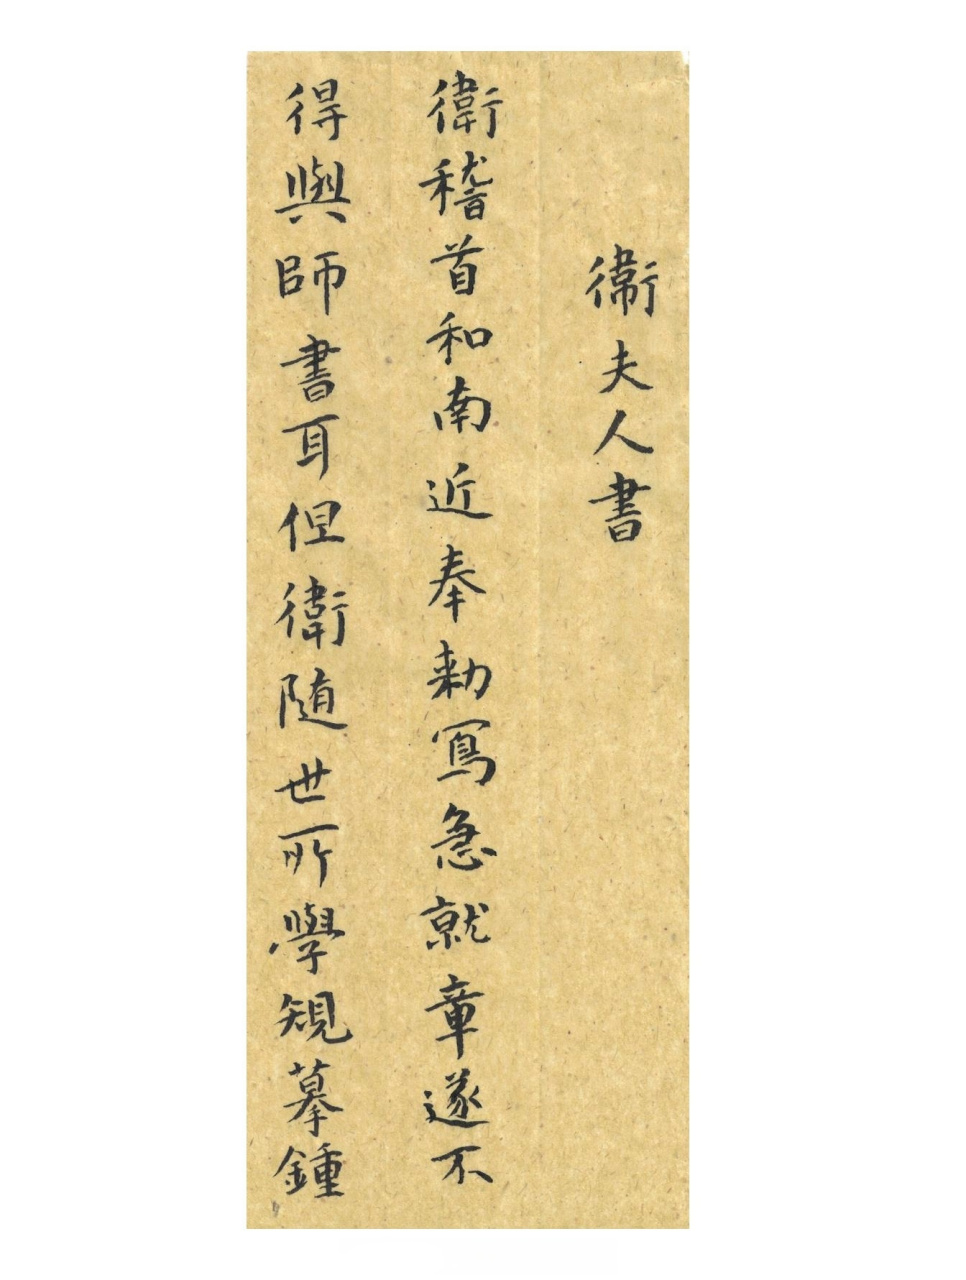 衛夫人書
衛稽首和南近奉勑寫急就章遂不
得與師書耳但衛随世所學規摹鍾